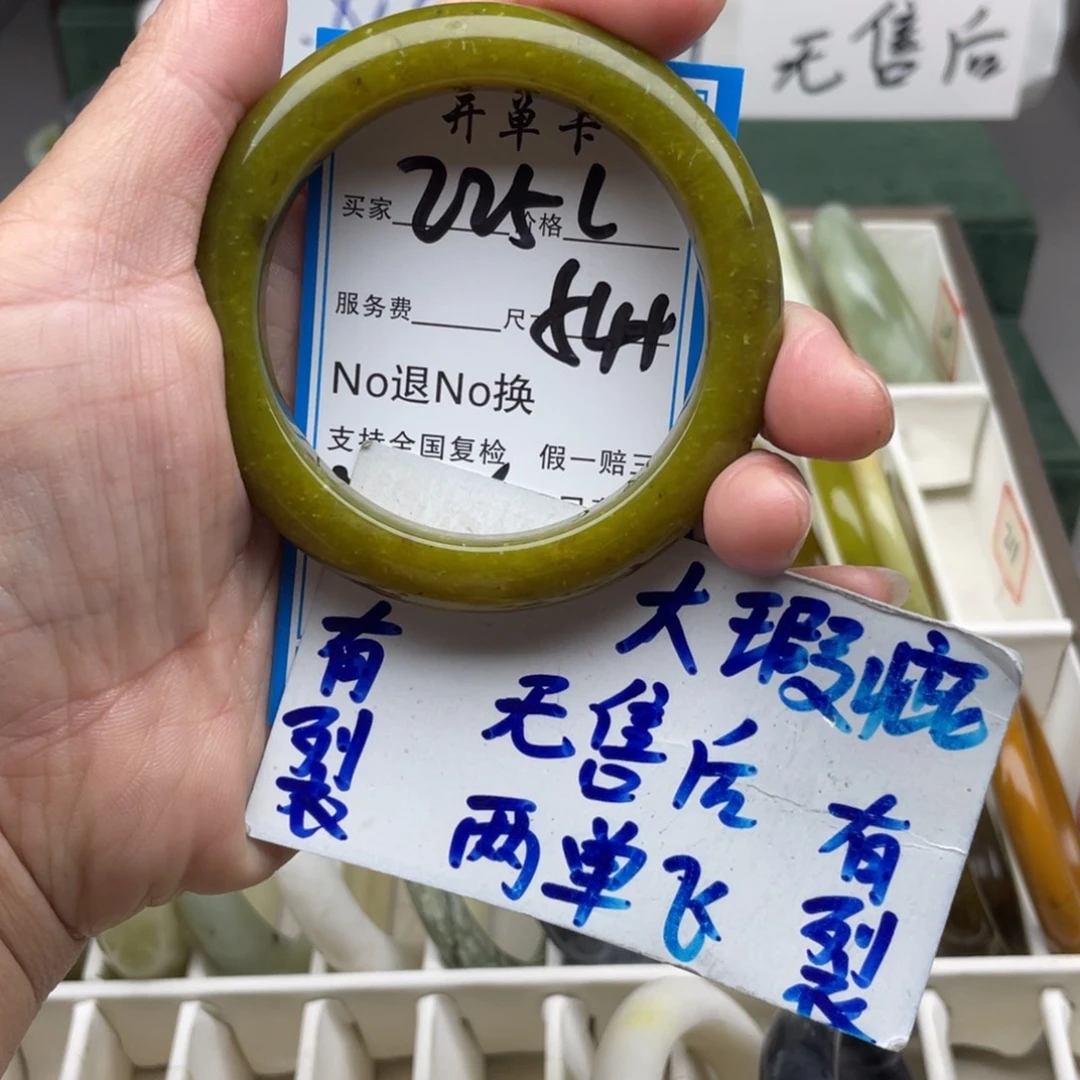 无售后
弃单卡
买家 225 价格 L
服务费 尺 54H
No退No换
支持全国复检 假一赔三
大瑕疵
无售后
两单飞
有裂
有裂